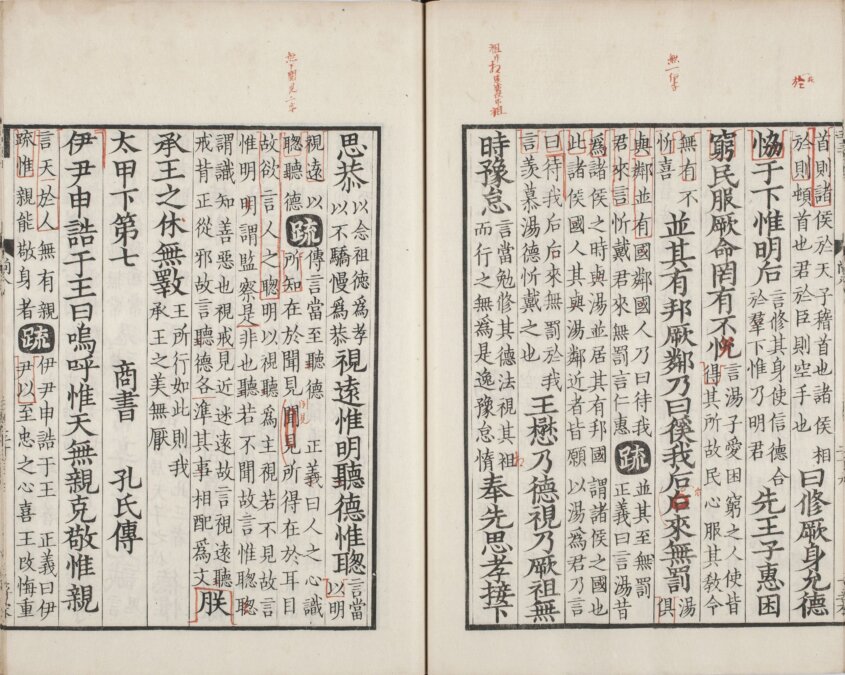 首則諸侯於天子稽首也諸侯相
於則頓首也君於臣則空手也
曰修厥身允德
恊于下惟明后
言修其身使信德合
於羣下惟乃明君
先王子惠困
窮民服厥命罔有不悅
言湯子愛困窮之人使皆
得其所故民心服其敎令
無有不
忻喜
並其有邦厥鄰乃曰徯我后后來無罰
湯
俱
與鄰並有國鄰國人乃曰待我
君來言忻戴君來無罰言仁惠
疏
並其至無罰
正義曰言湯昔
爲諸侯之時與湯並居其有邦國謂諸侯之國也
此諸侯國人其與湯鄰近者皆願以湯爲君乃言
曰待我后后來無罰於我
言羨慕湯德忻戴之也
王懋乃德視乃厥祖無
時豫怠
言當勉修其德法視其祖
而行之無為是逸豫怠惰
奉先思孝接下
思恭
以念祖德爲孝
以不驕慢爲恭
視遠惟明聽德惟聦
言當
以明
視遠以
聦聽德
疏
傳言當至聽德 正義曰人之心識
所知在於聞見聞見所得在於耳目
故欲言人之聦明以視聽爲主視若不見故言
惟明明謂監察是非也聽若不聞故言惟聦聦
謂識知善惡也視戒見近迷遠故言視遠聽
戒背正從邪故言聽德各準其事相配爲文
朕
承王之休無斁
王所行如此則我
承王之美無厭
太甲下第七 商書 孔氏傳
伊尹申誥于王曰嗚呼惟天無親克敬惟親
言天於人無有親
疏惟親能敬身者
疏
伊尹申誥于王 正義曰伊
伊以至忠之心喜王改悔重